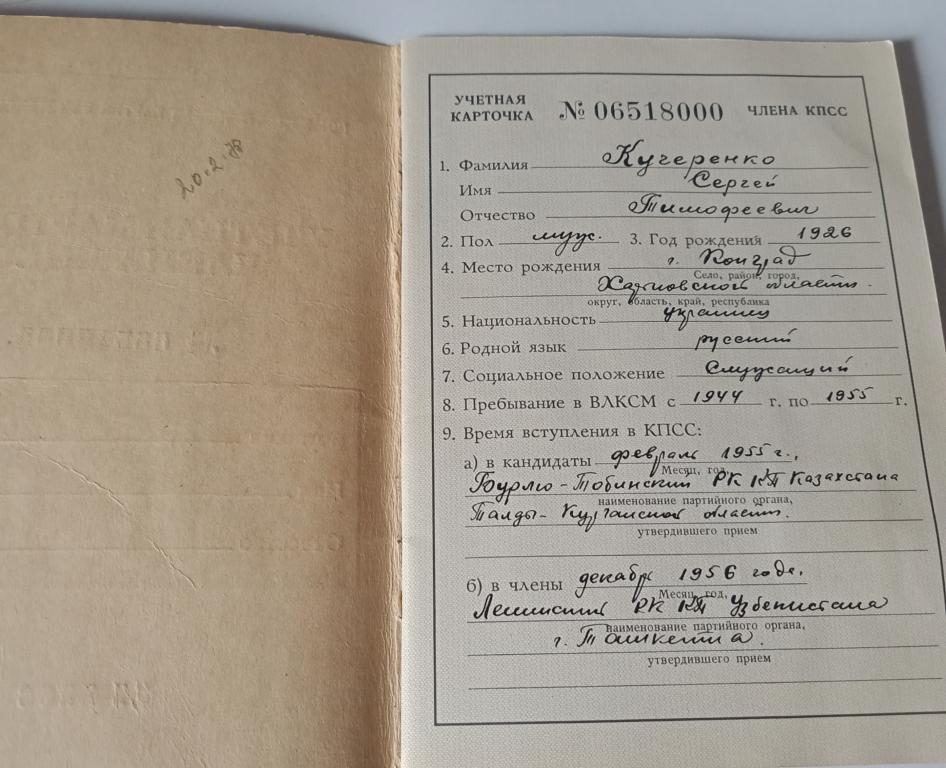 20.2.78
УЧЕТНАЯ КАРТОЧКА № 06518000 ЧЛЕНА КПСС
1. Фамилия Кучеренко
Имя Сергей
Отчество Тимофеевич
2. Пол муж. 3. Год рождения 1926
4. Место рождения г. Конград
Село, район, город,
Харьковской области.
округ, область, край, республика
5. Национальность украинец
6. Родной язык русский
7. Социальное положение Служащий
8. Пребывание в ВЛКСМ с 1944 г. по 1955 г.
9. Время вступления в КПСС:
а) в кандидаты февраль 1955 г.,
Месяц, год,
Бурлю-Тобинский РК КП Казахстана
наименование партийного органа,
Талды-Курганской области.
утвердившего прием
б) в члены декабрь 1956 года.
Месяц, год,
Ленинский РК КП Узбекистана
наименование партийного органа,
г. Ташкента.
утвердившего прием